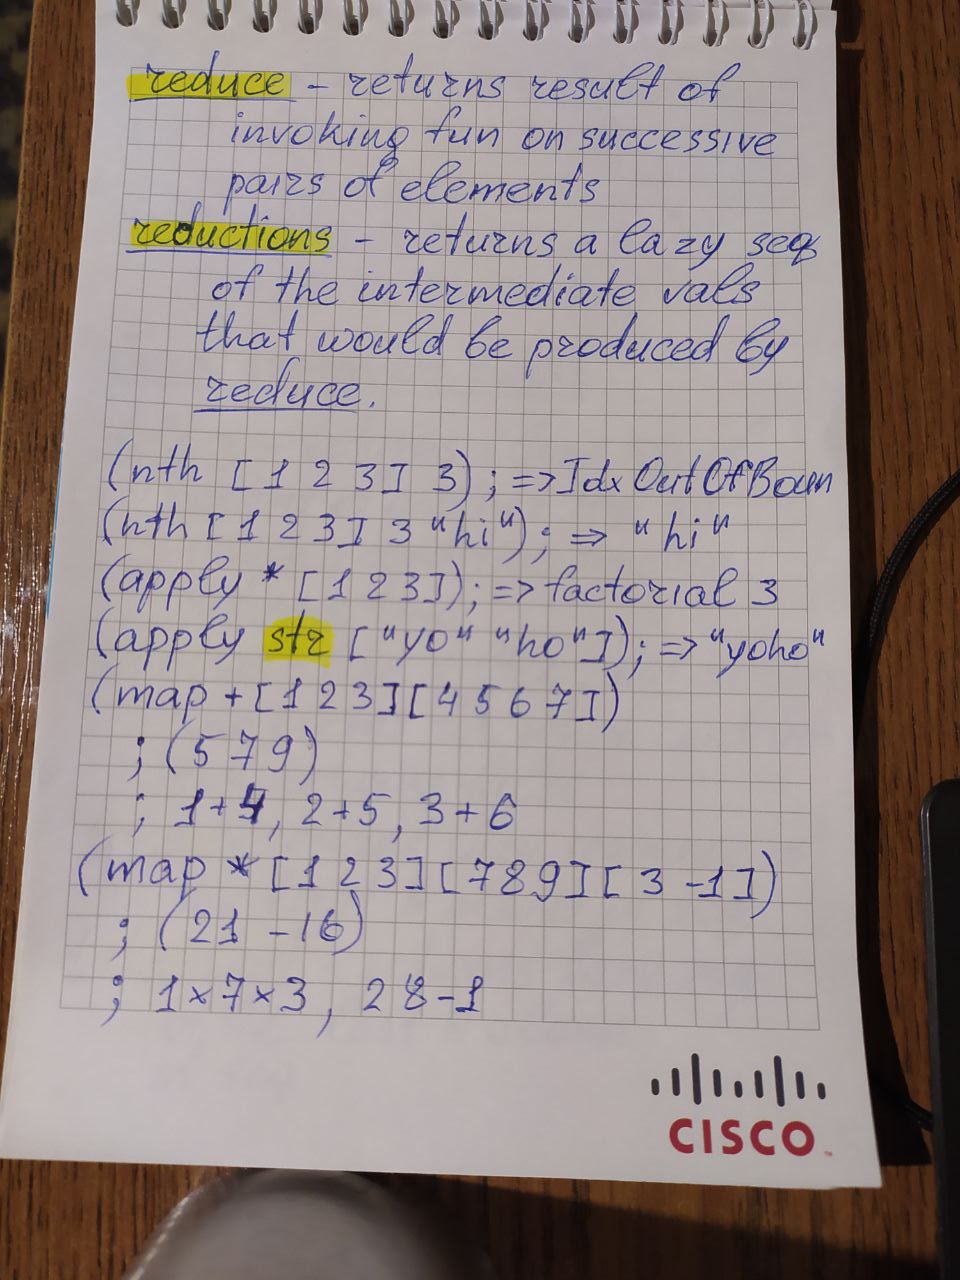 reduce - returns result of
invoking fun on successive
pairs of elements
reductions - returns a lazy seq
of the intermediate vals
that would be produced by
reduce.
(nth [1 2 3] 3) ; => IdxOutOfBoun
(nth [1 2 3] 3 "hi") ; => "hi"
(apply * [1 2 3]) ; => factorial 3
(apply str ["yo" "ho"]) ; => "yoho"
(map + [1 2 3] [4 5 6 7])
; (5 7 9)
; 1+4, 2+5, 3+6
(map * [1 2 3] [7 8 9] [3 -1])
; (21 -16)
; 1×7×3, 2 8 -1
CISCO